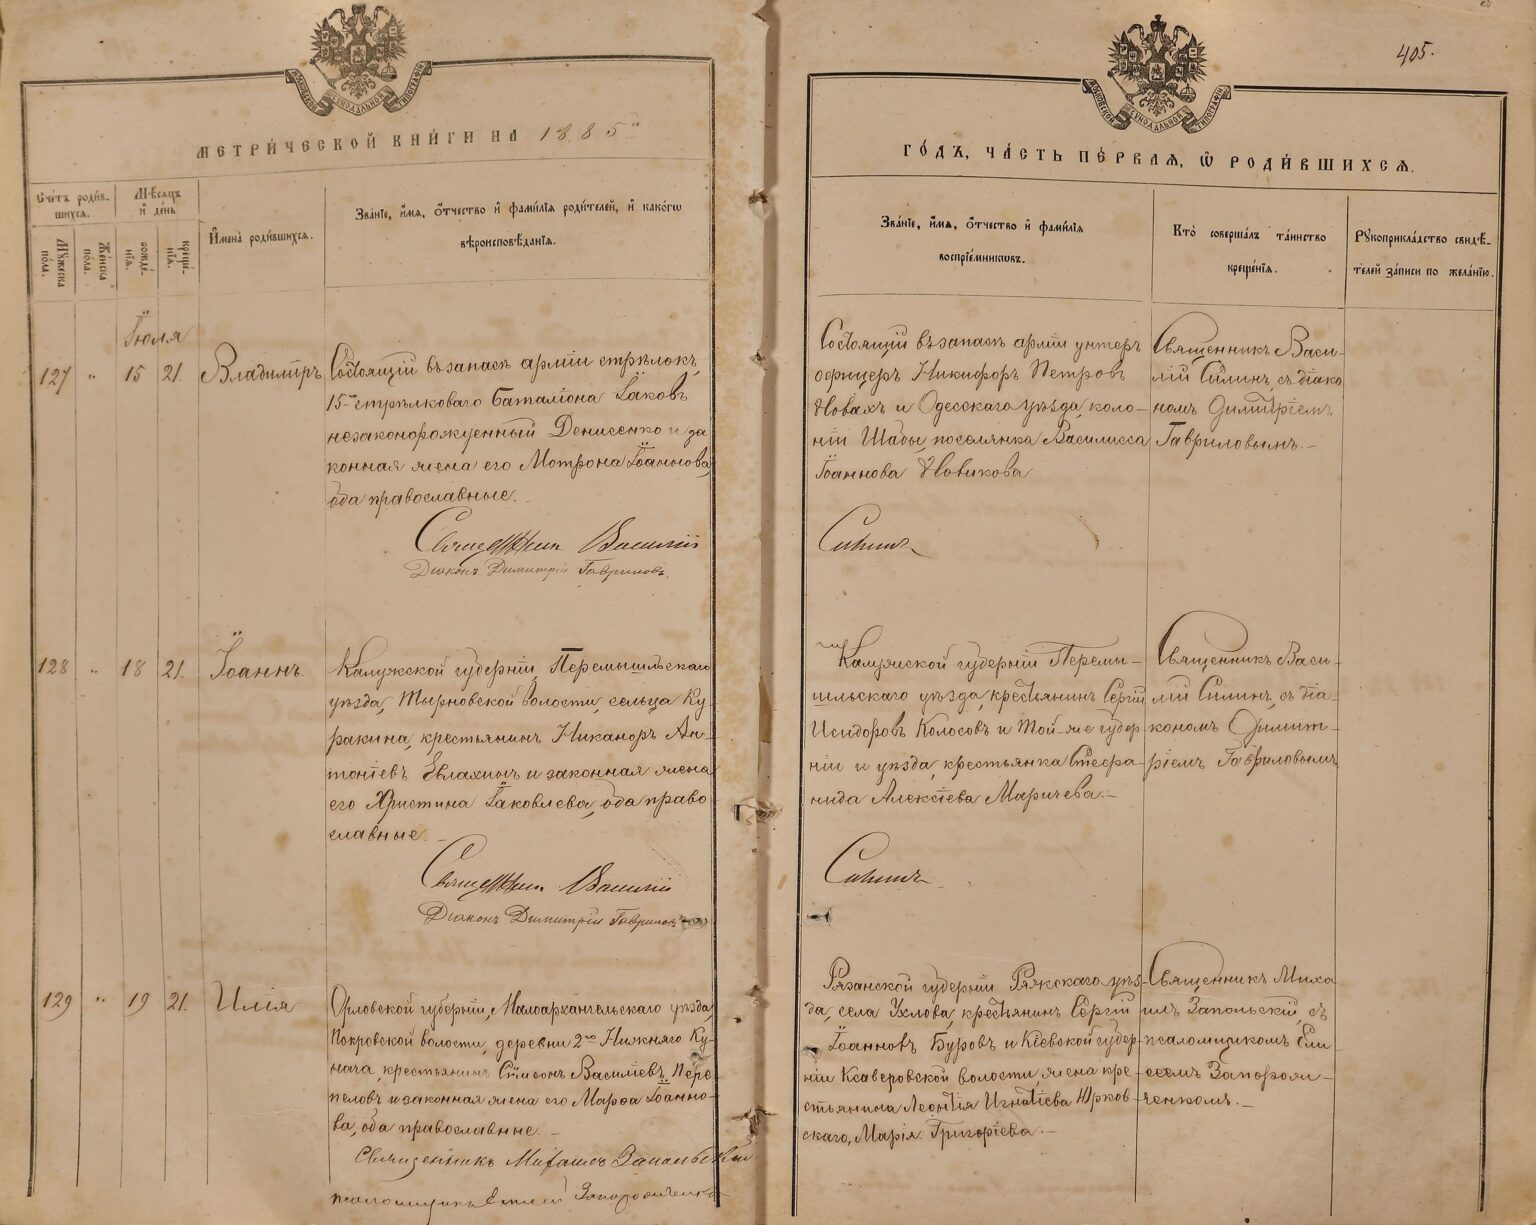 405.
МОСКОВСКОЙ СѴНОДАЛЬНОЙ ТИПОГРАФІИ
МОСКОВСКОЙ СѴНОДАЛЬНОЙ ТИПОГРАФІИ
МЕТРИ́ЧЕСКОЙ КНИ́ГИ НА 1885й
ГО́ДЪ, ЧА́СТЬ ПЕ́РВАЯ, Ѡ РОДИ́ВШИХСЯ.
Сче́тъ роди́в-
шихся.
Му́жеска по́ла.
Же́нска по́ла.
Мѣ́сяцъ
и де́нь
рожде́-
нїя.
креще́-
нїя.
Имена̀ роди́вшихся.
Зва́нїе, и́мя, о́тчество и фами́лїя роди́телей, и како́гѡ
вѣроисповѣ́данїя.
Зва́нїе, и́мя, о́тчество и фами́лїя
воспрїе́мникѡвъ.
Кто̀ соверша́лъ та́инство
креще́нїя.
Рꙋкоприкла́дство свидѣ́-
телей за́писи по жела́нїю.
Іюля
127 " 15 21. Владиміръ
Состоящій въ запасѣ арміи стрѣлокъ,
15го стрѣлковаго баталіона Іаковъ
незаконорожденный Денисенко и за
конная жена его Мотрона Іоаннова,
оба православные.
Священник Василій
Діаконъ Димитрій Гавриловъ.
Состоящій въ запасѣ арміи унтеръ
офицеръ Никифоръ Петровъ
Новакъ и Одесскаго уѣзда, коло-
ніи Шабы, поселянка Василисса
Іоаннова Новикова
Силинъ
Священникъ Васи-
лій Силинъ, съ діако
номъ Димитріемъ
Гавриловымъ.
128 " 18 21. Іоаннъ.
Калужской губерніи, Перемышльскаго
уѣзда, Тырновской волости, сельца Ку-
ракина, крестьянинъ Никаноръ Ан-
тоніевъ Евлахинъ и законная жена
его Христина Іаковлева, оба право
славные.
Священник Василій
Діаконъ Димитрій Гавриловъ
Калужской губерніи Перемы-
шльскаго уѣзда, крестьянинъ Сергій
Исидоровъ Колосовъ и той-же губер
ніи и уѣзда, крестьянка Стефа-
нида Алексіева Маричева.
Силинъ
Священникъ Васи-
лій Силинъ, съ діа-
кономъ Димит-
ріемъ Гавриловымъ
129 " 19 21. Илія
Орловской губерніи, Малоархангельскаго уѣзда,
Покровской волости, деревни 2го Нижняго Ку-
нача, крестьянинъ Симеонъ Василіевъ Пере-
пеловъ и законная жена его Марфа Іоанно-
ва, оба православные.
Священникъ Михаилъ Запольскій
псаломщикъ Елисей Запорожченко
Рязанской губерніи Ряжскаго уѣз-
да, села Ухлова, крестьянинъ Сергій
Іоанновъ Буровъ и Кіевской губер-
ніи Ксаверовской волости, жена кре-
стьянина Леонтія Игнатіева Юрков-
скаго, Марія Григоріева.
Священникъ Миха-
илъ Запольскій, съ
псаломщикомъ Ели
сеемъ Запорож-
ченкомъ.